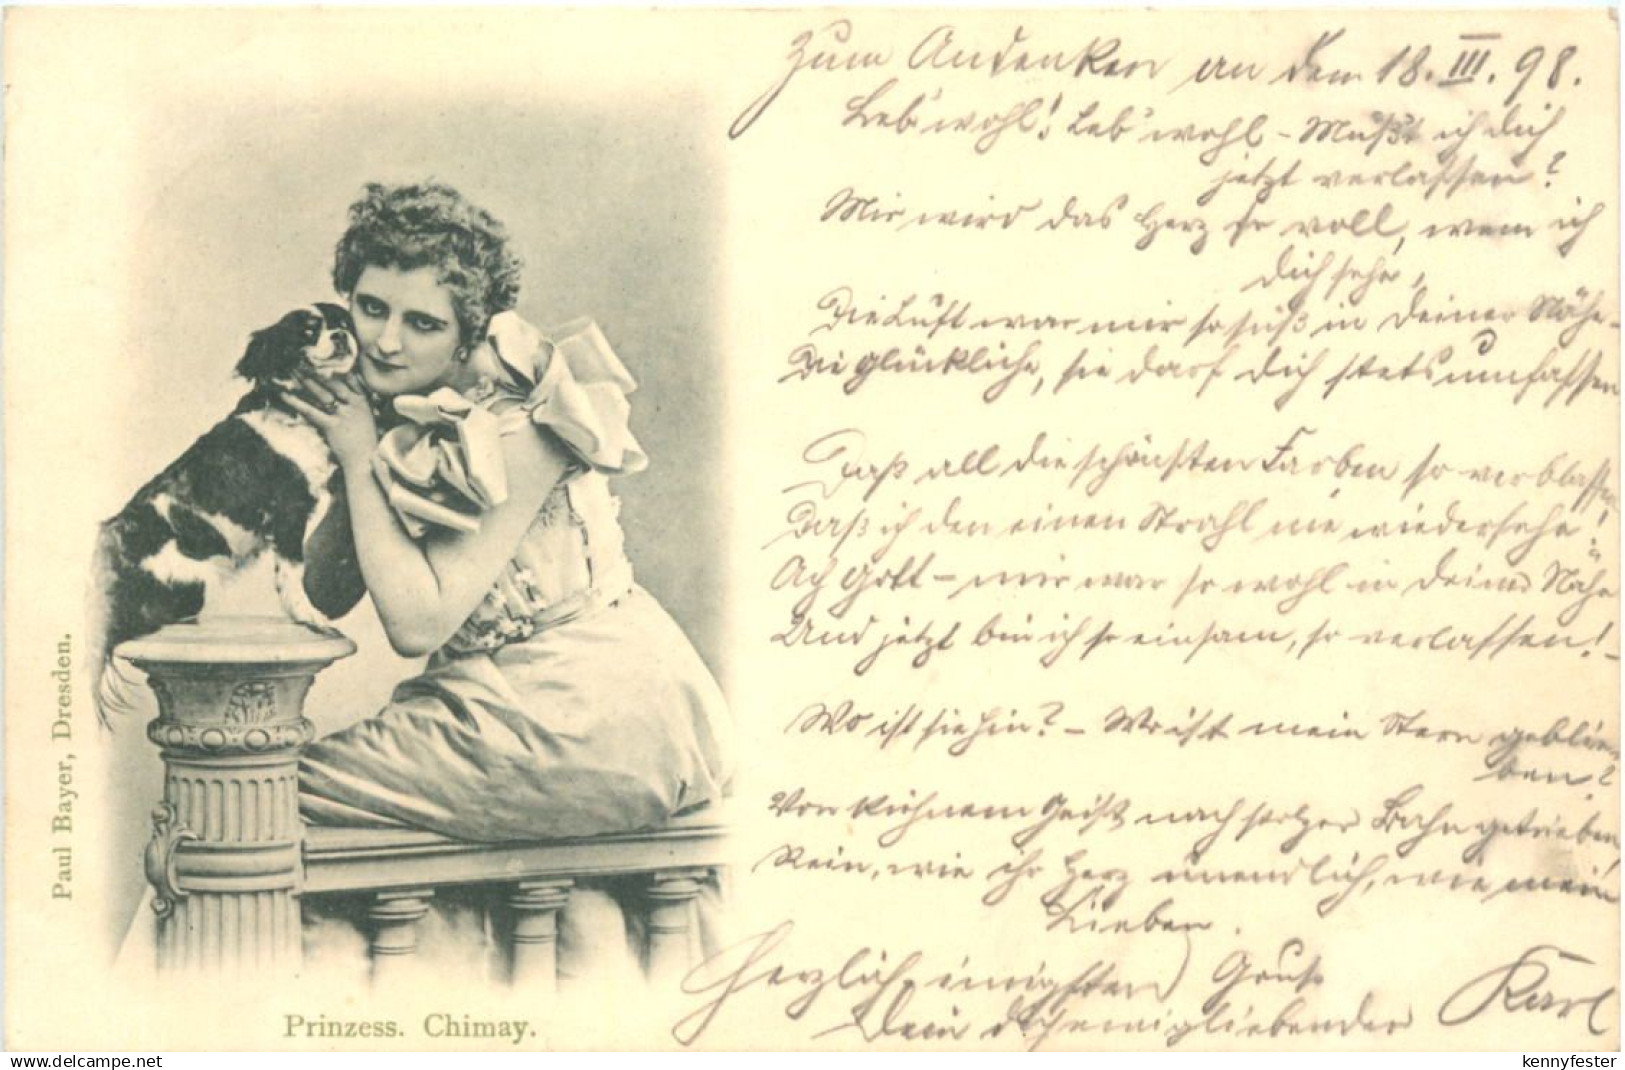 Zum Andenken an den 18. III. 98.
Leb' wohl! Leb' wohl – Mußt ich dich
jetzt verlassen?
Mir wird das Herz so voll, wenn ich
dich sehe,
Die Luft war mir so süß in deiner Nähe –
Die glückliche, sie darf dich stets umfassen
Daß all die schönsten Farben so verblassen
Daß ich den einen Strahl nie wiedersehe!
Ach Gott – mir war so wohl in deiner Nähe
Und jetzt bin ich so einsam, so verlassen! –
Wo ist sie hin? – Wo ist mein Stern geblie-
ben?
Von kühnem Geist nach stolzer Bahn getrieben,
Rein, wie ihr Herz unendlich, wie mein
Lieben.
Herzlich innigsten Gruß
Dein dich ewigliebender Karl
Paul Bayer, Dresden.
Prinzess. Chimay.
kennyfester